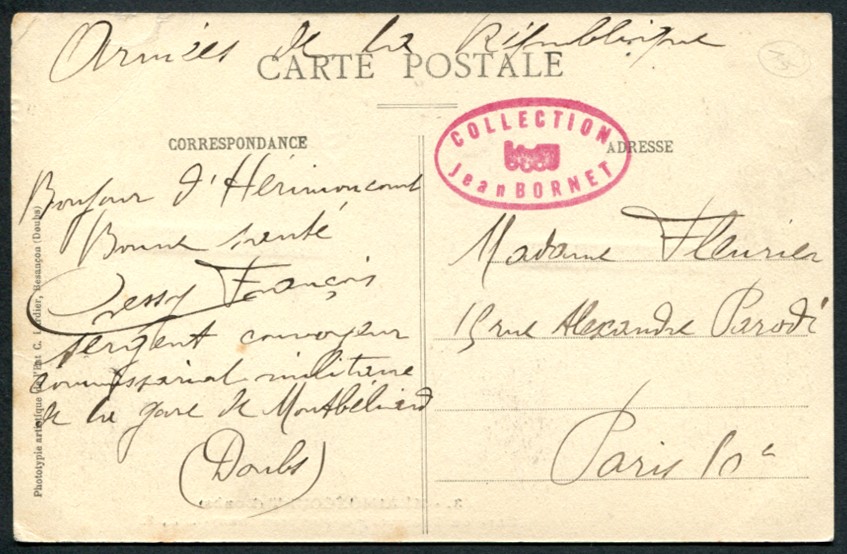 Armées de la République
CARTE POSTALE
CORRESPONDANCE
COLLECTION
Jean BORNET
ADRESSE
Bonjour d'Hérimoncourt
Bonne santé
François
sergent convoyeur
commissariat militaire
de la gare de Montbéliard
(Doubs)
Madame Fleurier
15 rue Alexandre Parodi
Paris 10e
Phototypie artistique de l'Ent C. Lardier, Besançon (Doubs)